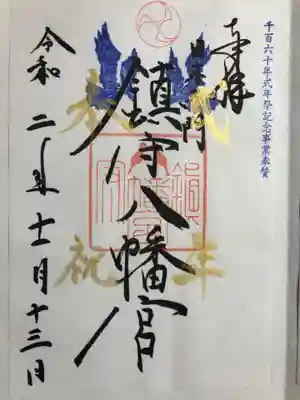 千百六十年式年祭記念事業奉賛
奉拝
鎮守八幡宮
奉祝
年
令和二年十一月十三日